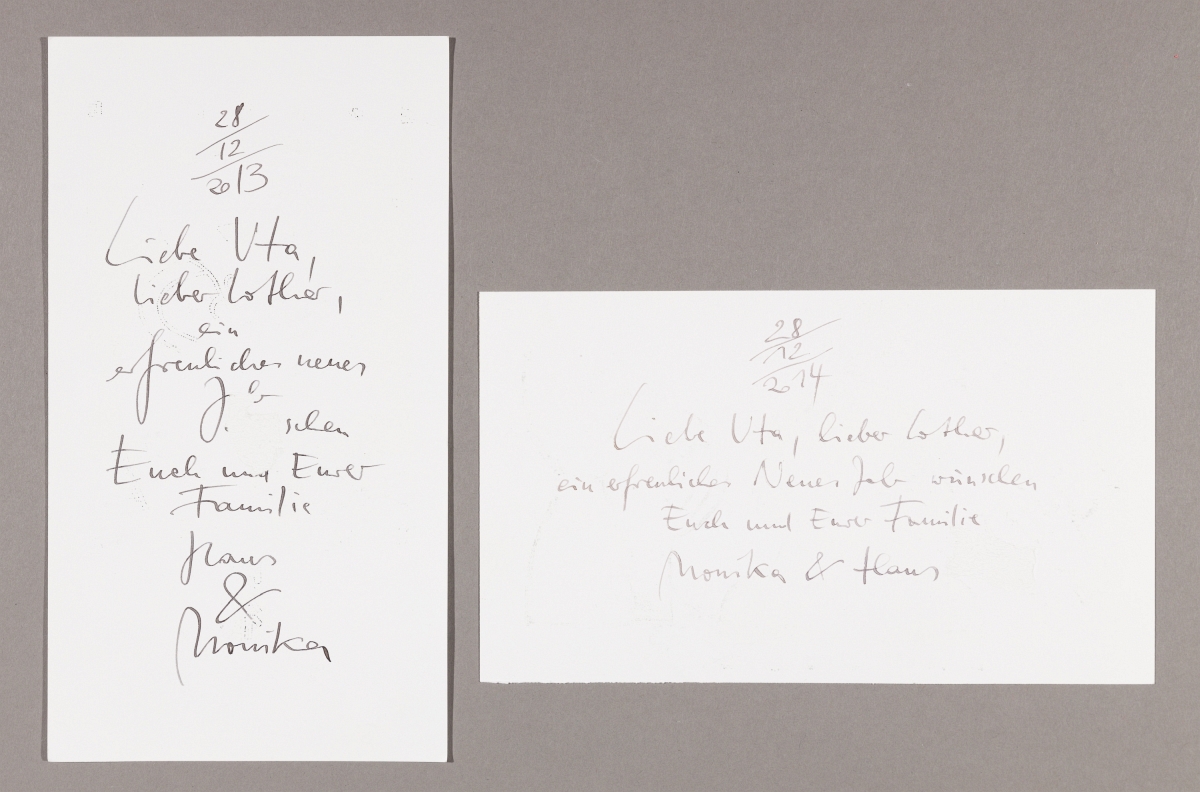 28
12
2013
Liebe Uta,
lieber Lothar,
ein
erfreuliches neues
J
schen
Euch und Eurer
Familie
Hans
&
Monika
28
12
2014
Liebe Uta, lieber Lothar,
ein erfreuliches Neues Jahr wünschen
Euch und Eurer Familie
Monika & Hans